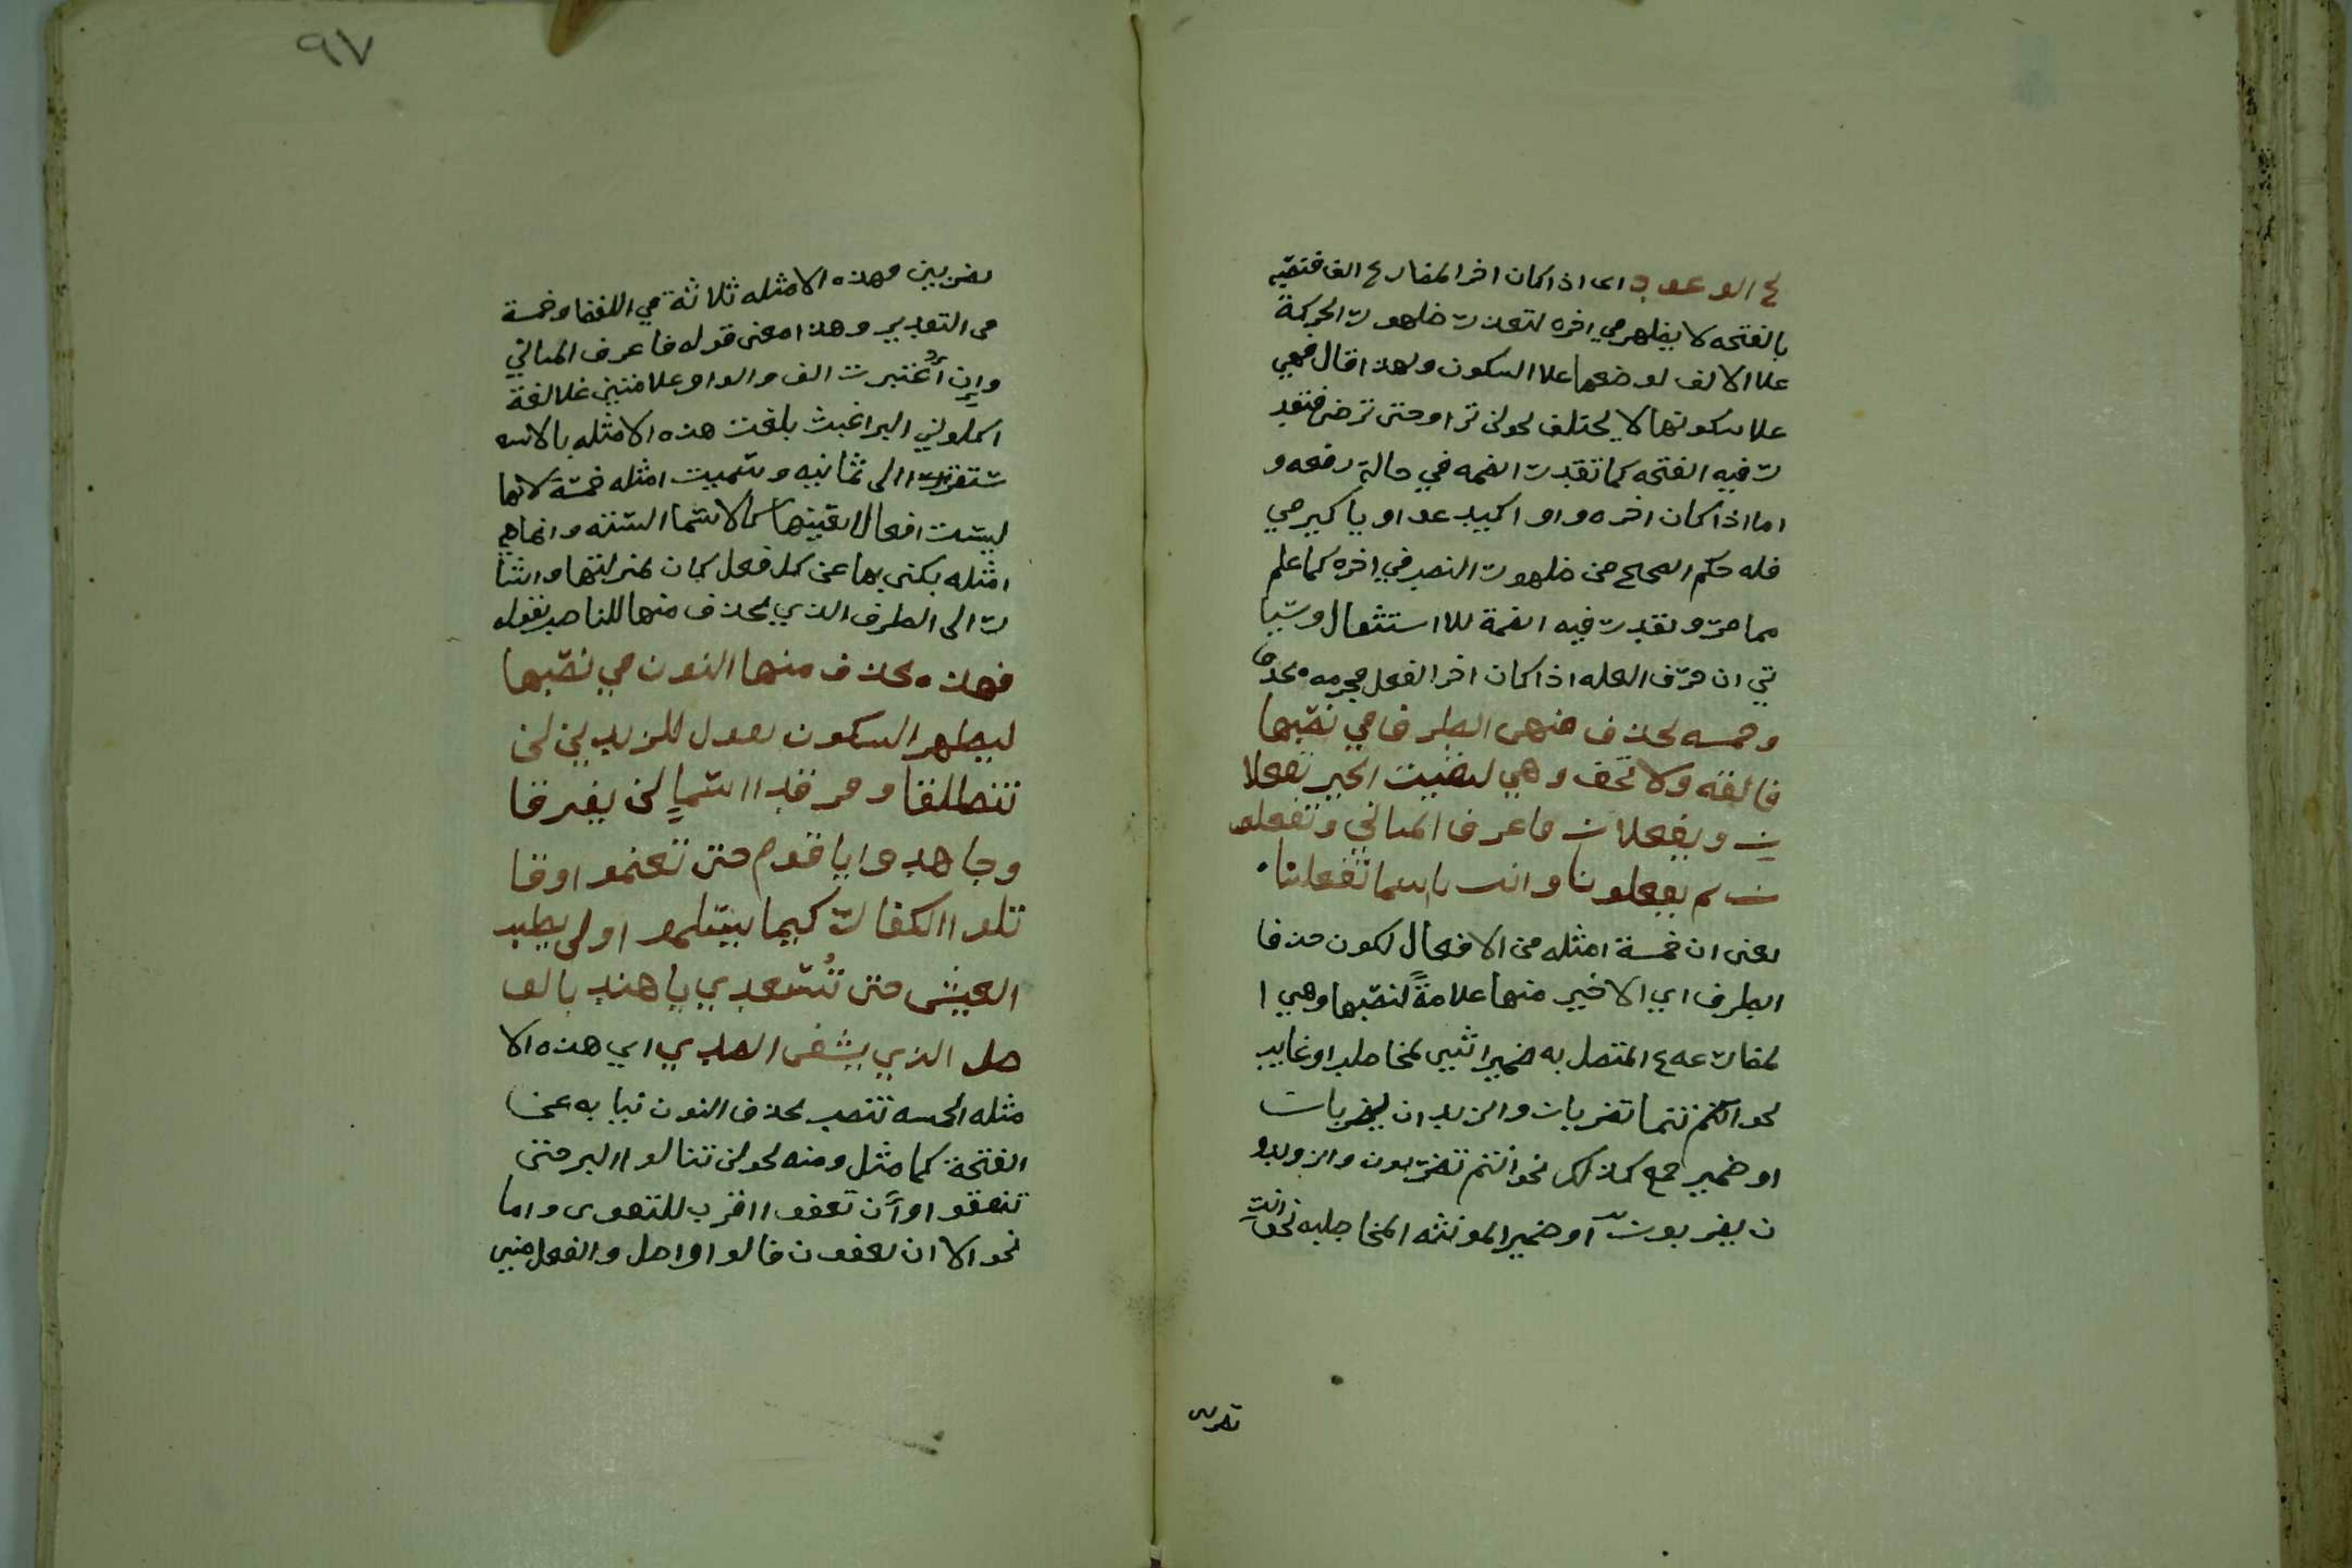 ع الوعود اى اذا كان اخر المضارع الف فنصبه
بالفتحه لا يظهر في اخره لتعذر ظهور الحركة
علا الالف لوضعها علا السكون ولهذا قال فهي
علا سكونها لا يختلف نحو لن ترا وحتى ترضى فتقد
ر فيه الفتحه كما تقدر الضمه في حالة رفعه و
اما اذا كان اخره واو اكيدعو او يا كيرمي
فله حكم الصحيح من ظهور النصب في اخره كما علم
مما مر وتقدر فيه الضمة للاستثقال وسيا
تي ان حرف العله اذا كان اخر الفعل فجزمه بحذف
وخمسه تحذف منهن الطرف في نصبها
فالقه ولا تخف وهي لقيت الخير تفعلا
ن ويفعلان فاعرف المباني وتفعلو
ن ثم يفعلونا وانت يا اسما تفعلينا
يعنى ان خمسة امثله من الافعال لكون حذفا
الطرف اي الاخير منها علامةً لنصبها وهي ا
لمضارعه ع المتصل به ضمير اثنين لمخاطب او غايب
نحو انتما تضربان والزيدان يضربان
او ضمير جمع كذلك نحو انتم تضربون والزيدو
ن يضربون او ضمير المونثه المخاطبه نحو انت
تضربين
٩٧
تضربين وهذه الامثله ثلاثة في اللفظ وخمسة
في التقدير وهذا معنى قوله فاعرف المباني
وان اُعتبرت الف والواو علامتين علا لغة
اكلوني البراغيث بلغت هذه الامثله بالاسـ
ـتقرا الى ثمانيه وسميت امثله خمسة لانها
ليست افعال بعينها كالاسما الستته وانماهي
امثله يكنى بها عن كل فعل كان بمنزلتها واشا
ر الى الطرف الذي يحذف منها للناصب بقوله
فهذه تحذف منها النون في نصبها
ليظهر السكون تقول للزيدين لن
تنطلقا وفرقدا السماِ لن يفترقا
وجاهدوا يا قوم حتى تغنموا وقا
تلوا الكفار كيما يسلموا ولن يطيب
العيش حتى تُسعدي يا هند بالو
صل الذي يشفى الصدي اي هذه الا
مثله الخمسه تنصب بحذف النون نيابه عن
الفتحة كما مثل ومنه نحو لن تنالوا البر حتى
تنفقوا وأَن تعفوا اقرب للتقوى واما
نحو الا ان يعفون فالواو اصل والفعل مبني